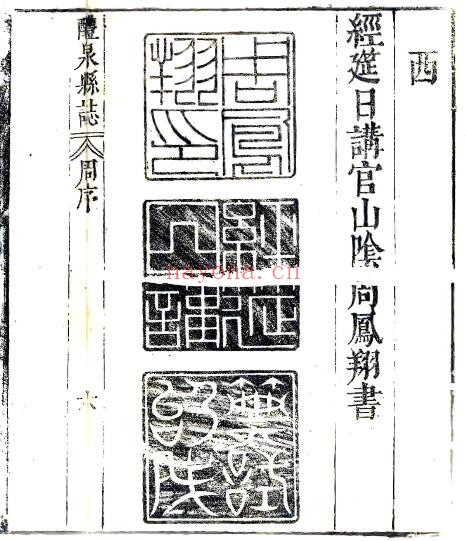 西
經筵日講官山陰周鳳翔書
周鳳翔印
醴泉縣誌
周序
六
nayona.cn